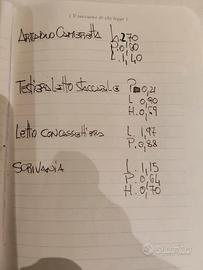 Il taccuino di chi legge
L. 2,70
P. 0,60
L. 1,40
Testiera Letto staccabile P 0,21
L 0,90
H. 0,69
Letto con cassettiera L 1,97
P. 0,88
SCRIVANIA L. 1,15
P. 0,64
H. 0,70
subito